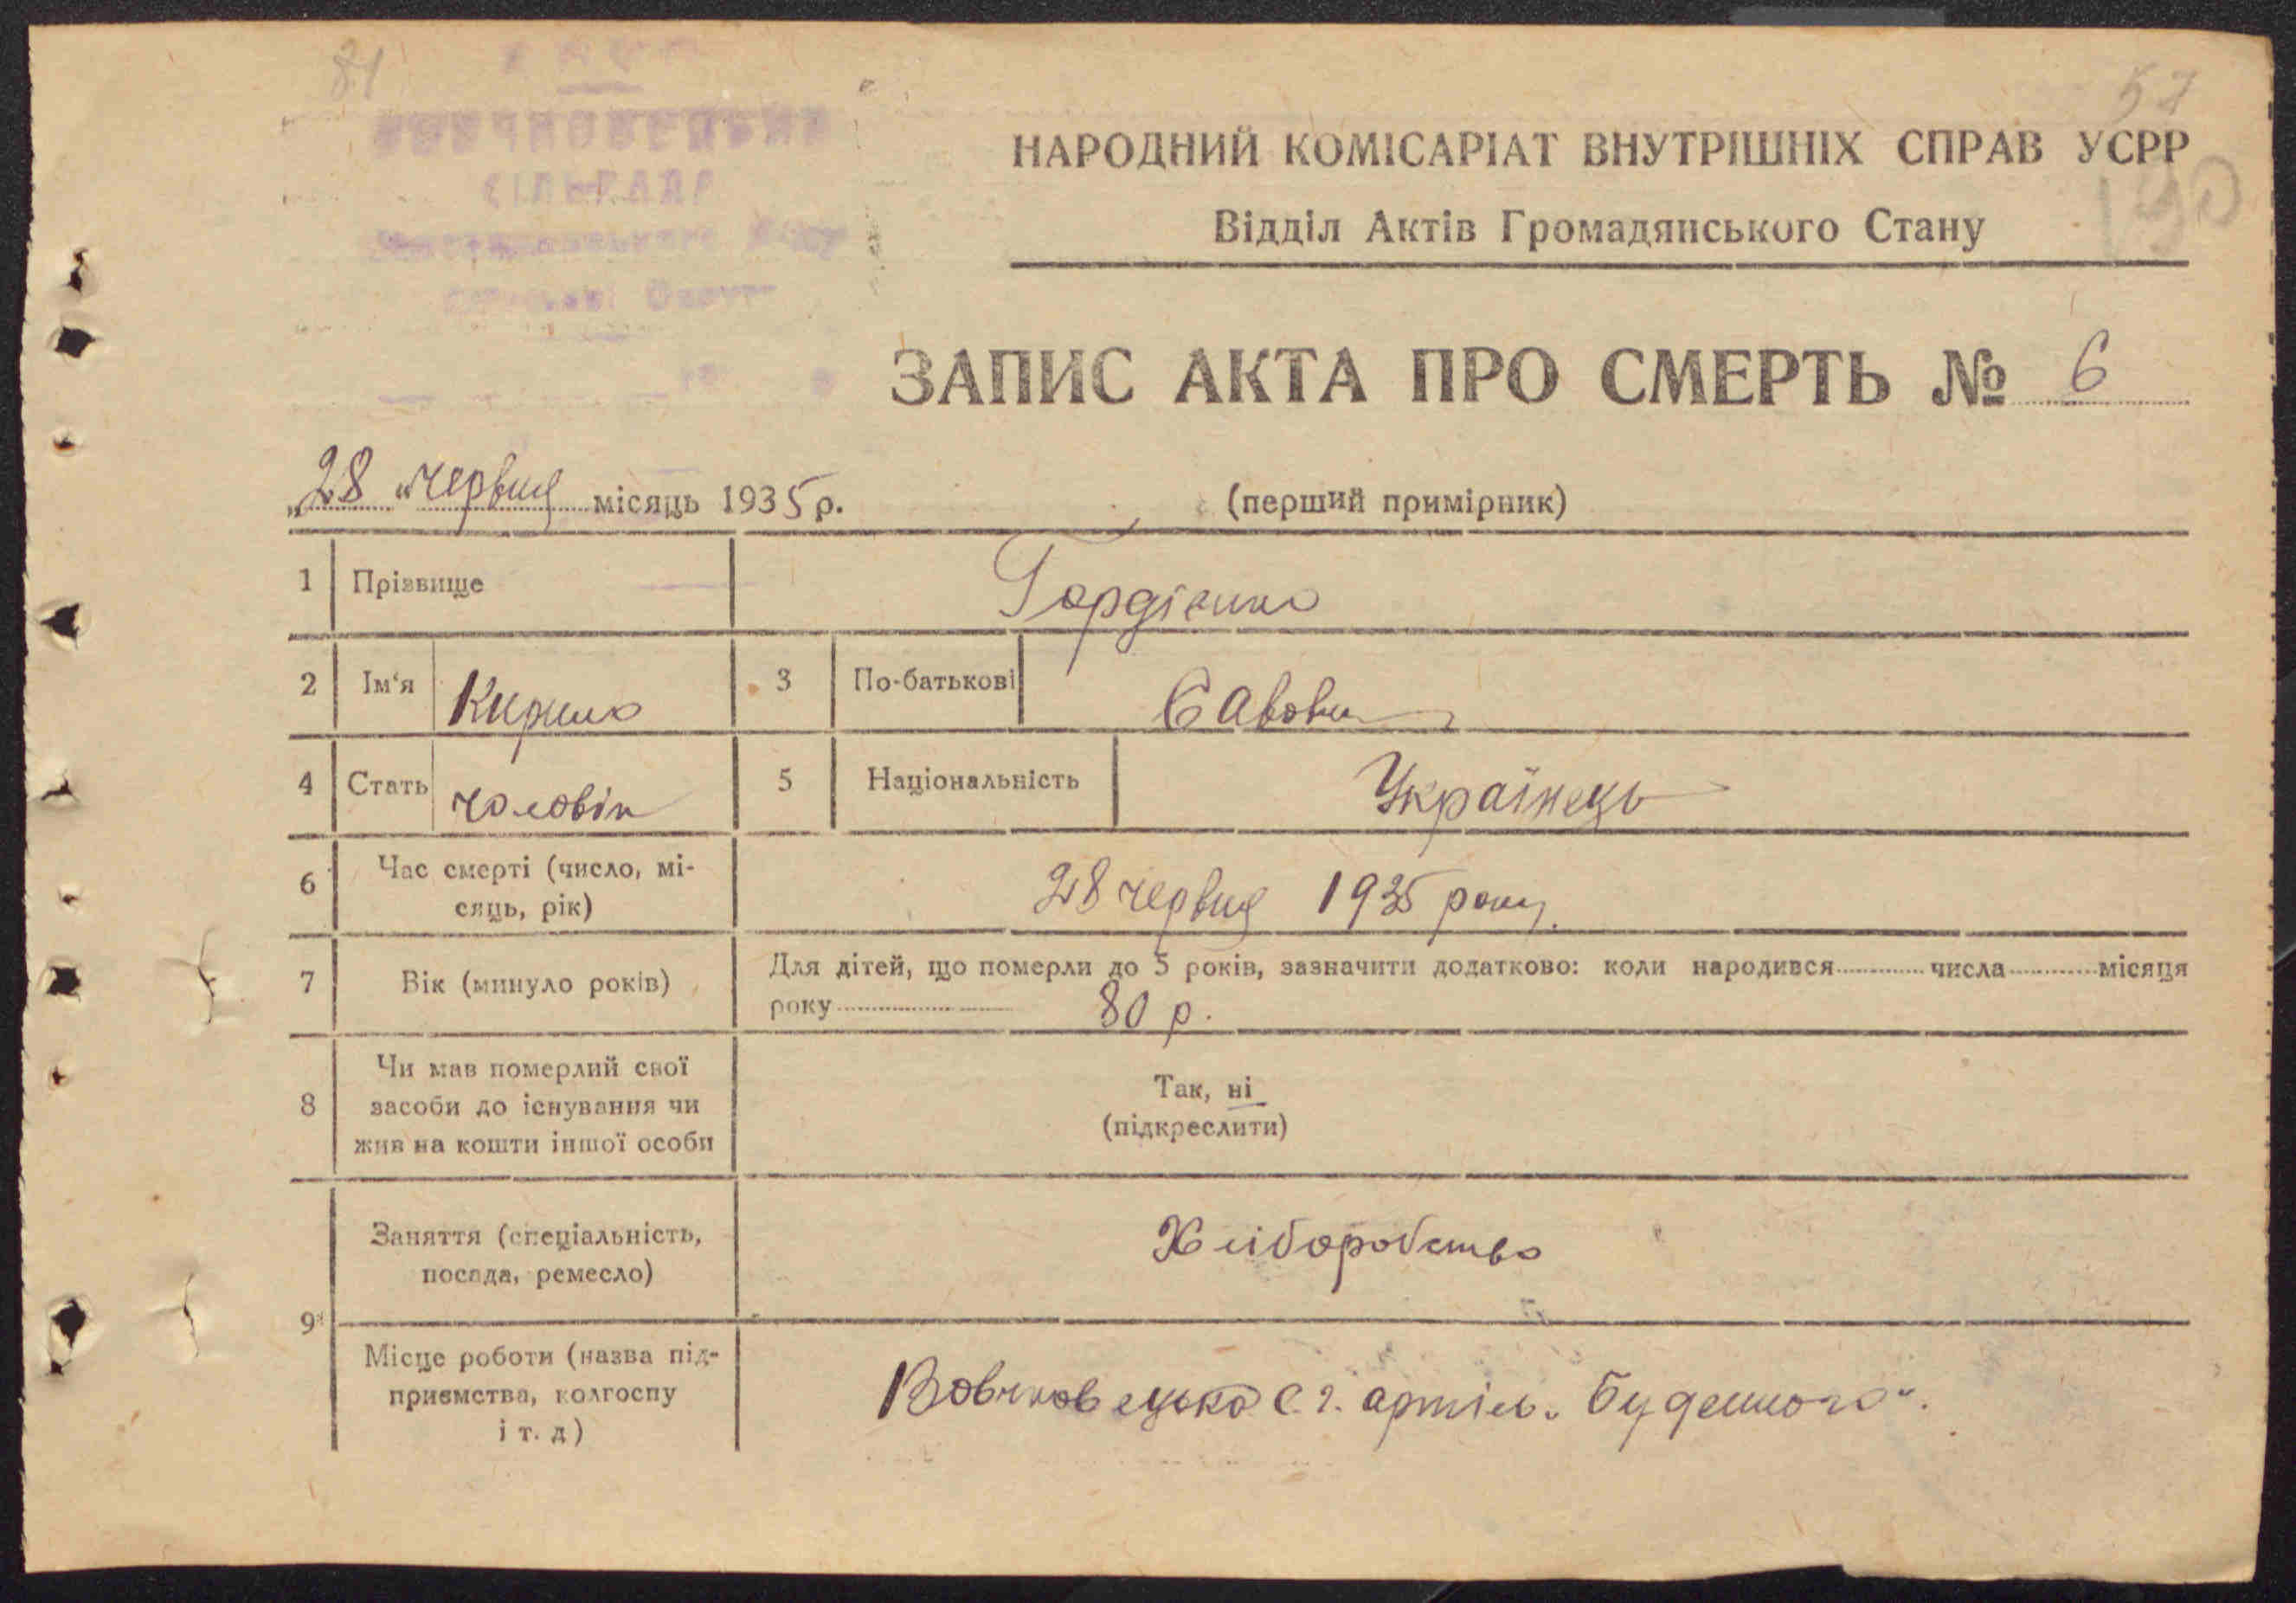 81
57
190
СІЛЬРАДА
НАРОДНИЙ КОМІСАРІАТ ВНУТРІШНІХ СПРАВ УСРР
Відділ Актів Громадянського Стану
ЗАПИС АКТА ПРО СМЕРТЬ № 6
„28 “ червня місяць 1935 р.
(перший примірник)
1 Прізвище Гордієнко
2 Ім'я Кирило 3 По-батькові Савович
4 Стать чоловік 5 Національність Українець
6 Час смерті (число, мі-
сяць, рік) 28 червня 1935 року.
7 Вік (минуло років) Для дітей, що померли до 5 років, зазначити додатково: коли народився числа місяця
року 80 р.
8 Чи мав померлий свої
засоби до існування чи
жив на кошти іншої особи
Так, ні
(підкреслити)
9 Заняття (спеціальність,
посада, ремесло) Хліборобство
Місце роботи (назва під-
приємства, колгоспу
і т. д) Вовчковецька с. г. артіль „Буденного".